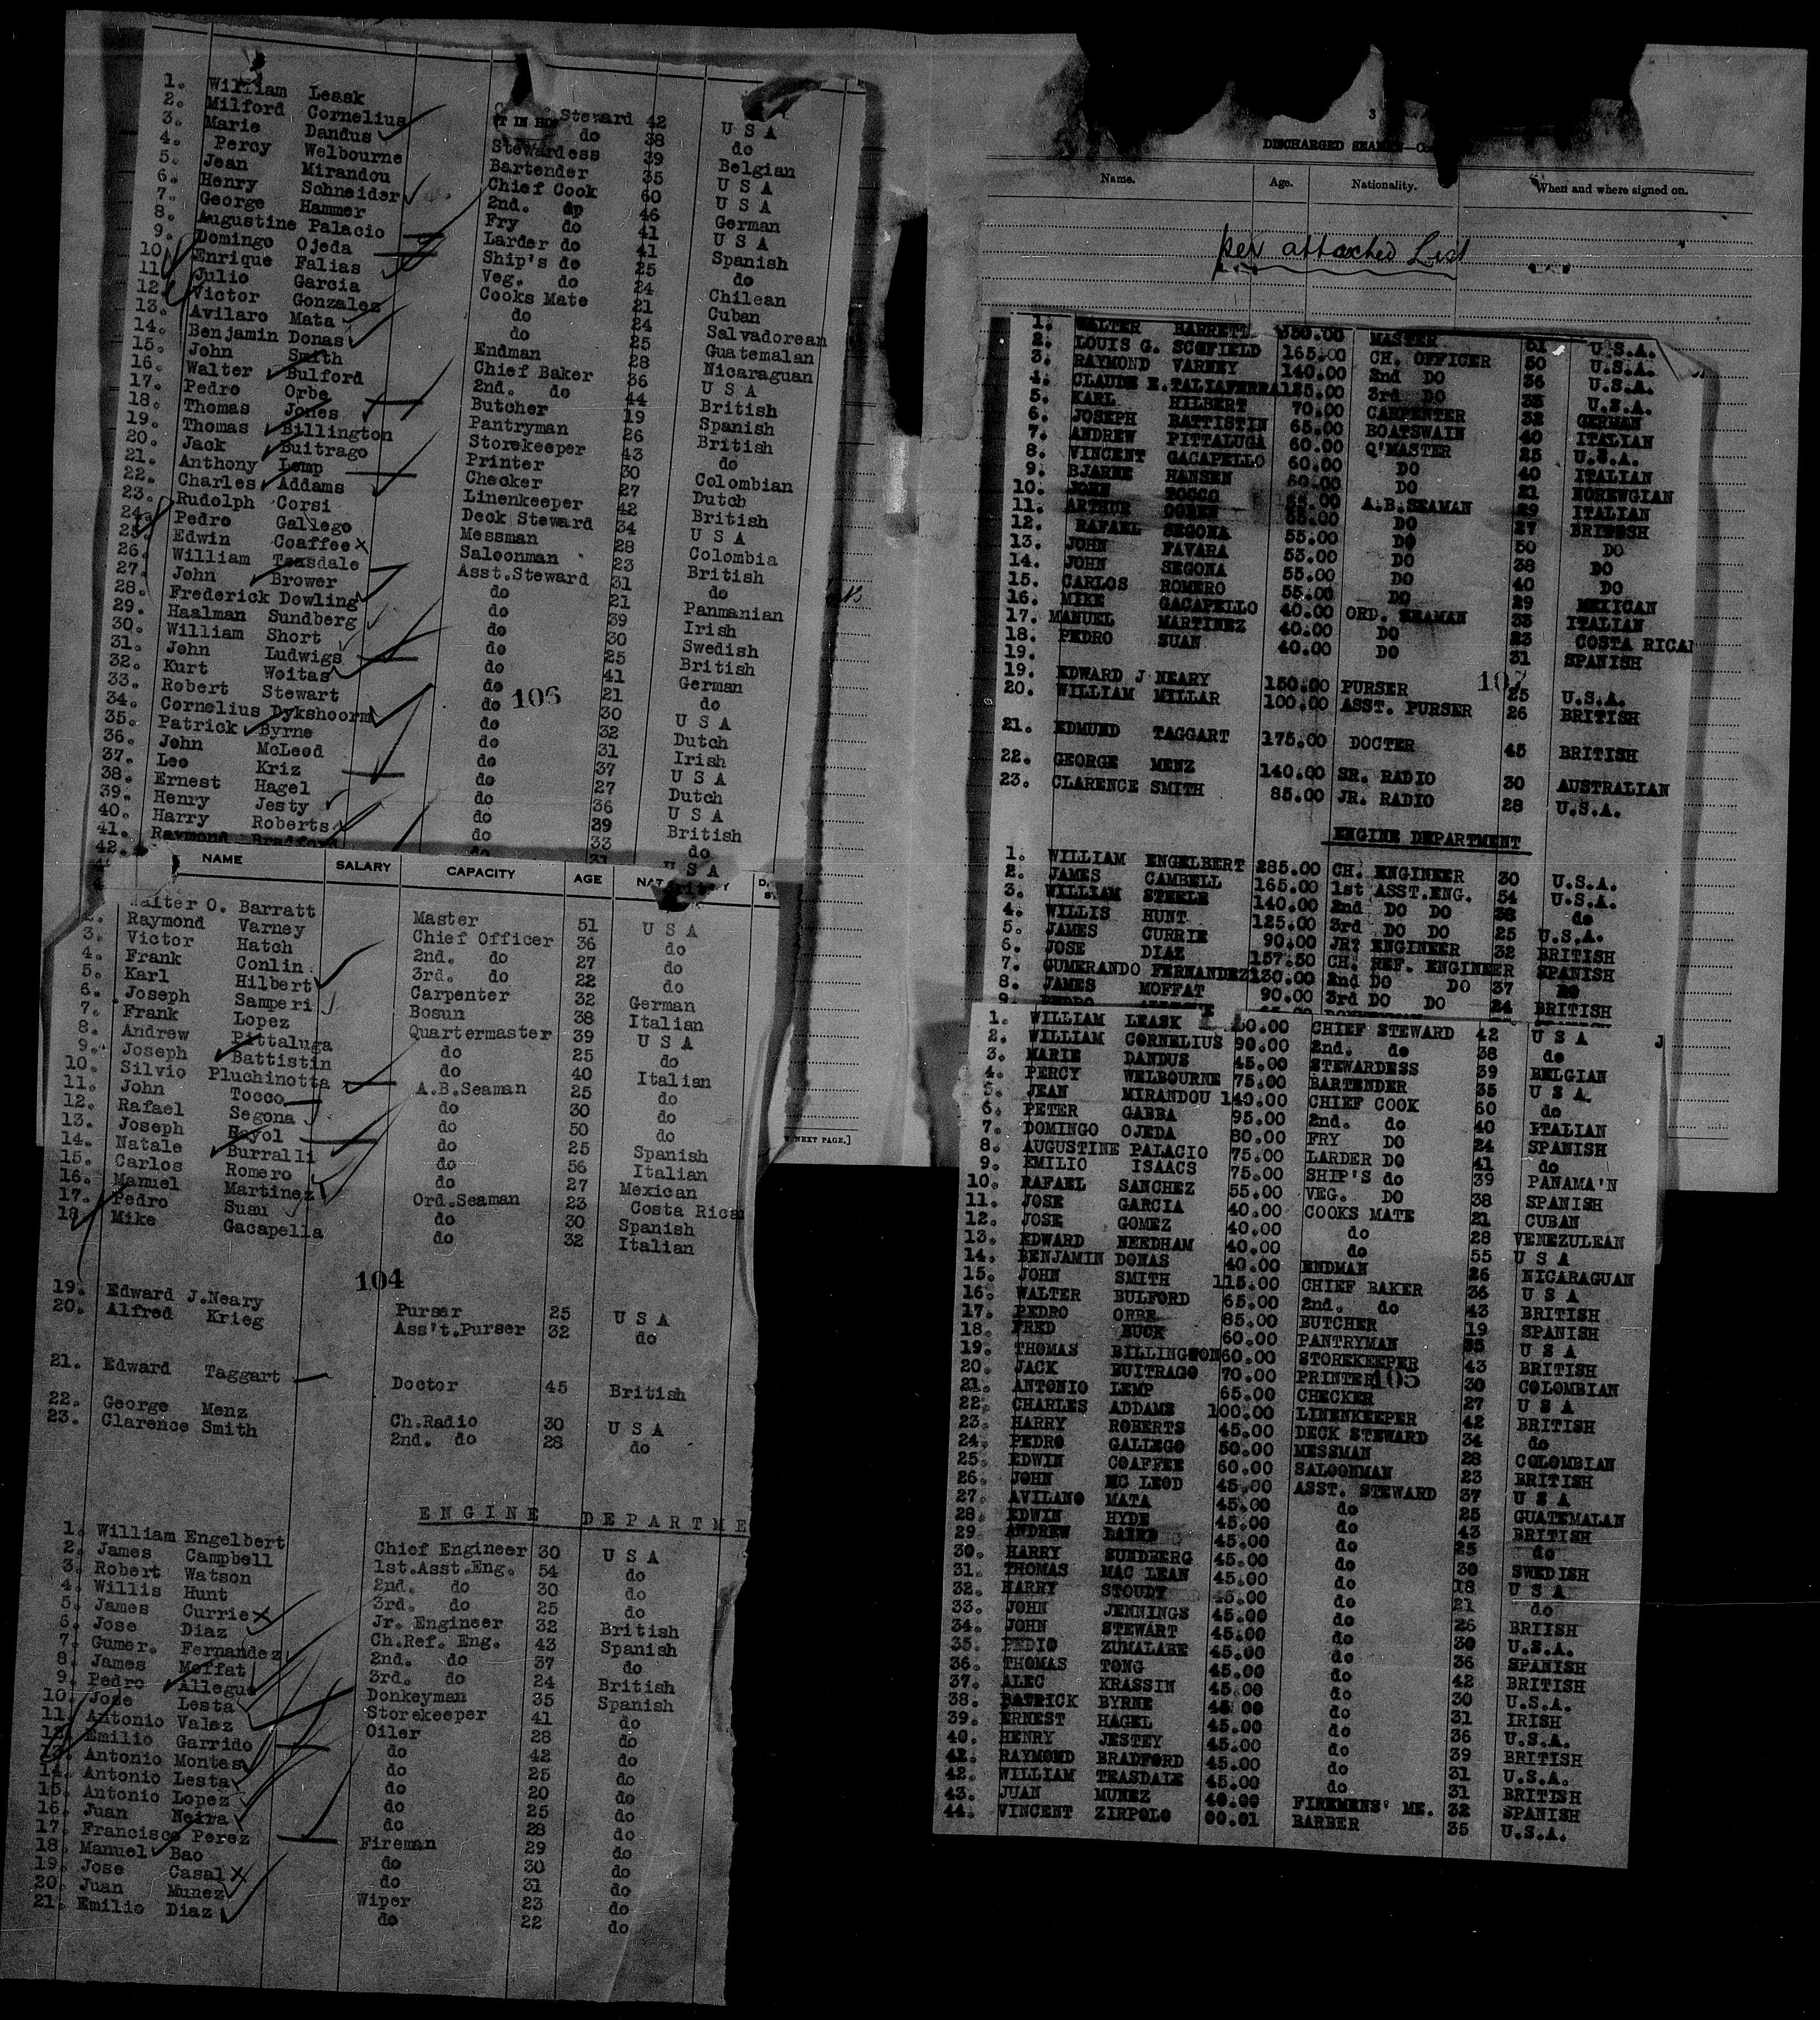 1. William Leask Steward 42 U S A
2. Milford Cornelius do 38 do
3. Marie Dandus Stewardess 39 Belgian
4. Percy Welbourne Bartender 35 U S A
5. Jean Mirandou Chief Cook 60 U S A
6. Henry Schneider 2nd. do 46 German
7. George Hammer Fry do 41 U S A
8. Augustine Palacio Larder do 41 Spanish
9. Domingo Ojeda Ship's do 25 do
10. Enrique Falias Veg. do 24 Chilean
11. Julio Garcia Cooks Mate 21 Cuban
12. Victor Gonzalez do 24 Salvadorean
13. Avilaro Mata do 25 Guatemalan
14. Benjamin Donas Endman 28 Nicaraguan
15. John Smith Chief Baker 36 U S A
16. Walter Bulford 2nd. do 44 British
17. Pedro Orbe Butcher 19 Spanish
18. Thomas Jones Pantryman 26 British
19. Thomas Billington Storekeeper 43 do
20. Jack Buitrago Printer 30 Colombian
21. Anthony Lemp Checker 27 Dutch
22. Charles Addams Linenkeeper 42 British
23. Rudolph Corsi Deck Steward 34 U S A
24. Pedro Gallego Messman 28 Colombia
25. Edwin Coaffee Saloonman 23 British
26. William Teasdale Asst.Steward 31 do
27. John Brower do 21 Panmanian
28. Frederick Dowling do 39 Irish
29. Haalman Sundberg do 30 Swedish
30. William Short do 25 British
31. John Ludwigs do 41 German
32. Kurt Woitas do 21 do
33. Robert Stewart do 30 U S A
34. Cornelius Dykshoorn do 32 Dutch
35. Patrick Byrne do 31 Irish
36. John McLeod do 37 U S A
37. Leo Kriz do 27 Dutch
38. Ernest Hagel do 36 U S A
39. Henry Jesty do 39 British
40. Harry Roberts do 33 do
41. Raymond Bradford do 31 U S A
42.
106
NAME SALARY CAPACITY AGE
Walter O. Barratt Master 51 U S A
2. Raymond Varney Chief Officer 36 do
3. Victor Hatch 2nd. do 27 do
4. Frank Conlin 3rd. do 22 do
5. Karl Hilbert Carpenter 32 German
6. Joseph Samperi Bosun 38 Italian
7. Frank Lopez Quartermaster 39 U S A
8. Andrew Pittaluga do 25 do
9. Joseph Battistin do 40 Italian
10. Silvio Pluchinotta A.B.Seaman 25 do
11. John Tocco do 30 do
12. Rafael Segona do 50 do
13. Joseph Hayol do 25 Spanish
14. Natale Burralli do 56 Italian
15. Carlos Romero do 27 Mexican
16. Manuel Martinez Ord.Seaman 23 Costa Rica
17. Pedro Suau do 30 Spanish
18. Mike Gacapella do 32 Italian
104
19. Edward J.Neary Purser 25 U S A
20. Alfred Krieg Ass't.Purser 32 do
21. Edward Taggart Doctor 45 British
22. George Menz Ch.Radio 30 U S A
23. Clarence Smith 2nd. do 28 do
ENGINE DEPARTME
1. William Engelbert Chief Engineer 30 U S A
2. James Campbell 1st.Asst.Eng. 54 do
3. Robert Watson 2nd. do 30 do
4. Willis Hunt 3rd. do 25 do
5. James Currie Jr. Engineer 32 British
6. Jose Diaz Ch.Ref. Eng. 43 Spanish
7. Gumer. Fernandez 2nd. do 37 do
8. James Moffat 3rd. do 24 British
9. Pedro Allegue Donkeyman 35 Spanish
10. Jose Lesta Storekeeper 41 do
11. Antonio Valez Oiler 28 do
12. Emilio Garrido do 42 do
13. Antonio Montes do 25 do
14. Antonio Lesta do 20 do
15. Antonio Lopez do 25 do
16. Juan Neira do 28 do
17. Francisco Perez Fireman 29 do
18. Manuel Bao do 30 do
19. Jose Casal do 31 do
20. Juan Munez Wiper 23 do
21. Emilio Diaz do 22 do
NEXT PAGE.]
3
DISCHARGED SEAMEN
Name. Age. Nationality. When and where signed on.
per attached List
1. WALTER BARRETT 350.00 MASTER 51 U.S.A.
2. LOUIS G. SCOFIELD 165.00 CH. OFFICER 50 U.S.A.
3. RAYMOND VARNEY 140.00 2nd DO 36 U.S.A.
4. CLAUDE E.TALIAFERRA 125.00 3rd DO 33 U.S.A.
5. KARL HILBERT 70.00 CARPENTER 32 GERMAN
6. JOSEPH BATTISTIN 65.00 BOATSWAIN 40 ITALIAN
7. ANDREW PITTALUGA 60.00 Q'MASTER 25 U.S.A.
8. VINCENT GACAPELLO 60.00 DO 40 ITALIAN
9. BJARNE HANSEN 60.00 DO 21 NOREWGIAN
10. JOHN TOCCO 55.00 A.B.SEAMAN 29 ITALIAN
11. ARTHUR OGREN 55.00 DO 27 BRITISH
12. RAFAEL SEGONA 55.00 DO 50 DO
13. JOHN FAVARA 55.00 DO 38 DO
14. JOHN SEGONA 55.00 DO 40 DO
15. CARLOS ROMERO 55.00 DO 29 MEXICAN
16. MIKE GACAPELLO 40.00 ORD. SEAMAN 33 ITALIAN
17. MANUEL MARTINEZ 40.00 DO 23 COSTA RICAN
18. PEDRO SUAN 40.00 DO 31 SPANISH
19.
107
19. EDWARD J NEARY 150.00 PURSER 25 U.S.A.
20. WILLIAM MILLAR 100.00 ASST. PURSER 26 BRITISH
21. EDMUND TAGGART 175.00 DOCTER 45 BRITISH
22. GEORGE MENZ 140.00 SR. RADIO 30 AUSTRALIAN
23. CLARENCE SMITH 85.00 JR. RADIO 28 U.S.A.
ENGINE DEPARTMENT
1. WILLIAM ENGELBERT 285.00 CH. ENGINEER 30 U.S.A.
2. JAMES CAMBELL 165.00 1st ASST.ENG. 54 U.S.A.
3. WILLIAM STEELE 140.00 2nd DO DO 38 do
4. WILLIS HUNT 125.00 3rd DO DO 25 U.S.A.
5. JAMES CURRIE 90.00 JR? ENGINEER 32 BRITISH
6. JOSE DIAZ 157.50 CH. REF. ENGINEER SPANISH
7. GUMERANDO FERNANDEZ 130.00 2nd DO DO 37 DO
8. JAMES MOFFAT 90.00 3rd DO DO 24 BRITISH
9. PEDRO
1. WILLIAM LEASK CHIEF STEWARD 42 U S A
2. WILLIAM CORNELIUS 90.00 2nd. do 38 do
3. MARIE DANDUS 45.00 STEWARDESS 39 BELGIAN
4. PERCY WELBOURNE 75.00 BARTENDER 35 U S A
5. JEAN MIRANDOU 140.00 CHIEF COOK 60 do
6. PETER GABBA 95.00 2nd. do 40 ITALIAN
7. DOMINGO OJEDA 80.00 FRY DO 24 SPANISH
8. AUGUSTINE PALACIO 75.00 LARDER DO 41 do
9. EMILIO ISAACS 75.00 SHIP'S do 39 PANAMA'N
10. RAFAEL SANCHEZ 55.00 VEG. DO 38 SPANISH
11. JOSE GARCIA 40.00 COOKS MATE 21 CUBAN
12. JOSE GOMEZ 40.00 do 28 VENEZULEAN
13. EDWARD NEEDHAM 40.00 do 55 U S A
14. BENJAMIN DONAS 40.00 ENDMAN 26 NICARAGUAN
15. JOHN SMITH 115.00 CHIEF BAKER 36 U S A
16. WALTER BULFORD 65.00 2nd. do 43 BRITISH
17. PEDRO ORBE 85.00 BUTCHER 19 SPANISH
18. FRED BUCK 60.00 PANTRYMAN 35 U S A
19. THOMAS BILLINGSON 60.00 STOREKEEPER 43 BRITISH
20. JACK BUITRAGO 70.00 PRINTER 30 COLOMBIAN
105
21. ANTONIO LEMP 65.00 CHECKER 27 U S A
22. CHARLES ADDAMS 100.00 LINENKEEPER 42 BRITISH
23. HARRY ROBERTS 45.00 DECK STEWARD 34 do
24. PEDRO GALLEGO 50.00 MESSMAN 28 COLOMBIAN
25. EDWIN COAFFEE 60.00 SALOONMAN 23 BRITISH
26. JOHN MC LEOD 45.00 ASST. STEWARD 37 U S A
27. AVILANO MATA 45.00 do 25 GUATEMALAN
28. EDWIN HYDE 45.00 do 43 BRITISH
29. ANDREW 45.00 do 25 do
30. HARRY SUNDBERG 45.00 do 30 SWEDISH
31. THOMAS MAC LEAN 45.00 do 18 U S A
32. HARRY STOUDY 45.00 do 21 do
33. JOHN JENNINGS 45.00 do 26 BRIISH
34. JOHN STEWART 45.00 do 30 U.S.A.
35. PEDIO ZUMALABE 45.00 do 36 SPANISH
36. THOMAS TONG 45.00 do 42 BRITISH
37. ALEC KRASSIN 45.00 do 30 U.S.A.
38. PATRICK BYRNE 45 00 do 31 IRISH
39. ERNEST HAGEL 45.00 do 36 U.S.A.
40. HENRY JESTEY 45.00 do 39 BRITISH
42. RAYMOND BRADFORD 45.00 do 31 U.S.A.
42. WILLIAM TEASDALE 45.00 do 31 BRITISH
43. JUAN MUNEZ 40.00 FIREMENS' ME. 32 SPANISH
44. VINCENT ZIRPOLO 00.01 BARBER 35 U.S.A.